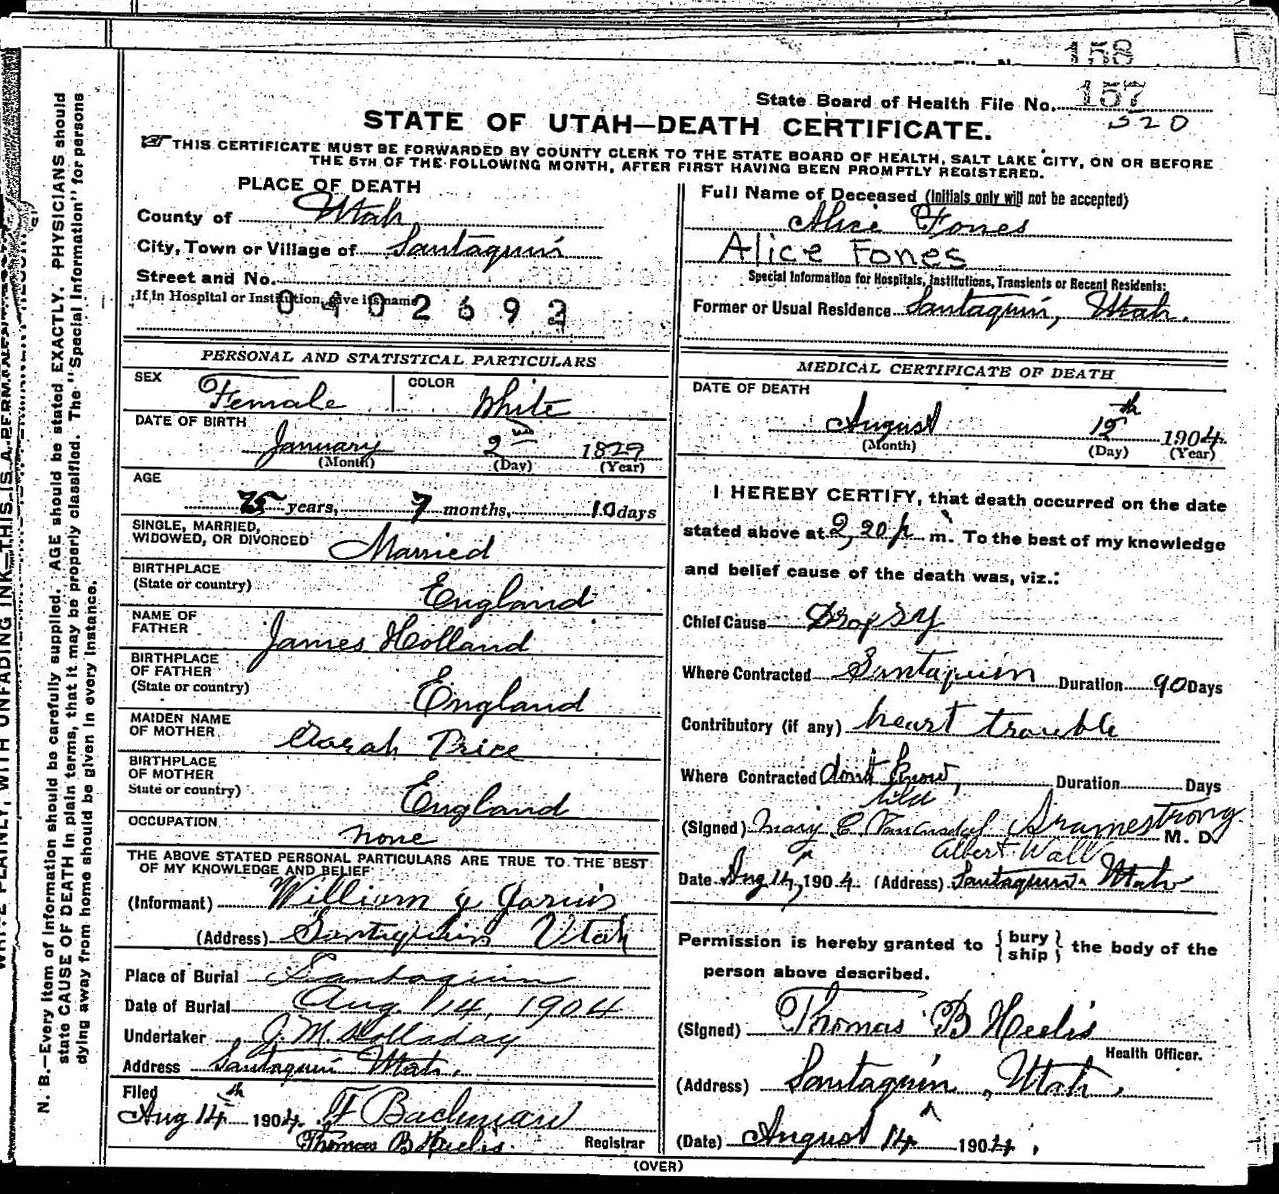 158
State Board of Health File No. 157
520
STATE OF UTAH—DEATH CERTIFICATE.
THIS CERTIFICATE MUST BE FORWARDED BY COUNTY CLERK TO THE STATE BOARD OF HEALTH, SALT LAKE CITY, ON OR BEFORE
THE 5TH OF THE FOLLOWING MONTH, AFTER FIRST HAVING BEEN PROMPTLY REGISTERED.
PLACE OF DEATH
County of Utah
City, Town or Village of Santaquin
Street and No.
If in Hospital or Institution, give its name
0402693
Full Name of Deceased (Initials only will not be accepted)
Alice Fones
Alice Fones
Special Information for Hospitals, Institutions, Transients or Recent Residents:
Former or Usual Residence Santaquin, Utah.
PERSONAL AND STATISTICAL PARTICULARS
SEX Female COLOR White
DATE OF BIRTH
January 2nd 1829
(Month) (Day) (Year)
AGE
75 years, 7 months, 10 days
SINGLE, MARRIED,
WIDOWED, OR DIVORCED Married
BIRTHPLACE
(State or country) England
NAME OF
FATHER James Holland
BIRTHPLACE
OF FATHER
(State or country) England
MAIDEN NAME
OF MOTHER Sarah Price
BIRTHPLACE
OF MOTHER
State or country) England
OCCUPATION none
THE ABOVE STATED PERSONAL PARTICULARS ARE TRUE TO THE BEST
OF MY KNOWLEDGE AND BELIEF
(Informant) William G Jarvis
(Address) Santaquin Utah
Place of Burial Santaquin
Date of Burial Aug. 14, 1904
Undertaker J. M. Holladay
Address Santaquin Utah.
Filed
Aug 14th 1904. F Bachman
Thomas B Heelis. Registrar
MEDICAL CERTIFICATE OF DEATH
DATE OF DEATH
August 12th 1904.
(Month) (Day) (Year)
I HEREBY CERTIFY, that death occurred on the date
stated above at 2,20 p. m. To the best of my knowledge
and belief cause of the death was, viz.:
Chief Cause Dropsy
Where Contracted Santaquin Duration 90 Days
Contributory (if any) heart trouble
Where Contracted don't know, Duration Days
(Signed) Mary C M. D.
Albert Wall
Date Aug 14, 1904. (Address) Santaquin. Utah
Permission is hereby granted to { bury ship } the body of the
person above described.
(Signed) Thomas B Heelis
Health Officer.
(Address) Santaquin, Utah.
(Date) August 14 1904.
(OVER)
N. B.—Every item of information should be carefully supplied. AGE should be stated EXACTLY. PHYSICIANS should
state CAUSE OF DEATH in plain terms, that it may be properly classified. The "Special Information" for persons
dying away from home should be given in every instance.
WRITE PLAINLY, WITH UNFADING INK—THIS IS A PERMANENT